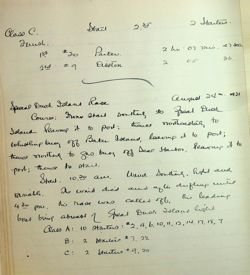 Class C. Start 2 Starters.
Finish.
1st #20 Parker 2 hr. 07 min. 47 sec.
2nd #9 Easton 2 08 36
Great Duck Island Race August 24th 1931
Course: From start Southerly to Great Duck
Island leaving it to port; thence northeasterly to
whistling buoy off Baker Island, leaving it to port;
thence northerly to gas buoy off Bear Harbor, leaving it to
port; thence to start.
Start. 10.30 am. Wind Southerly, light and
variable. The wind died and after drifting until
4.30 pm. the race was called off, the leading
boat being abreast of Great Duck Island light
Class A: 10 starters: 2, 4, 6, 10, 11, 12, 14, 17, 15, 7
B: 2 starters 7, 22
C: 2 starters 9, 20